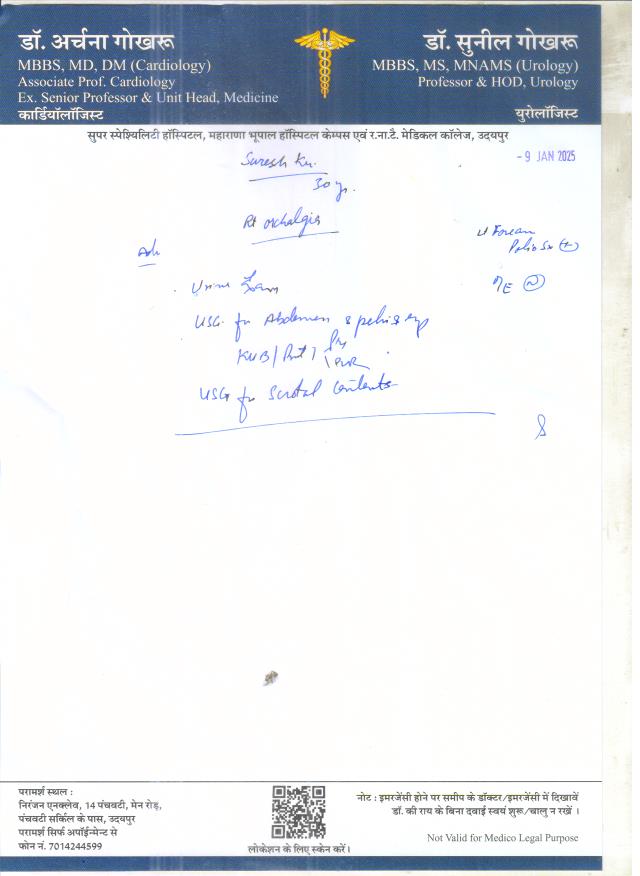 डॉ. अर्चना गोखरू
MBBS, MD, DM (Cardiology)
Associate Prof. Cardiology
Ex. Senior Professor & Unit Head, Medicine
कार्डियॉलॉजिस्ट
डॉ. सुनील गोखरू
MBBS, MS, MNAMS (Urology)
Professor & HOD, Urology
युरोलॉजिस्ट
सुपर स्पेश्यिलिटी हॉस्पिटल, महाराणा भूपाल हॉस्पिटल केम्पस एवं र.ना.टै. मेडिकल कॉलेज, उदयपुर
- 9 JAN 2025
Suresh Ku.
30 yr.
Rt orchalgia
Adv
Urine Exam
USG for Abdomen & pelvis
KUB/
USG for Scrotal Contents
परामर्श स्थल :
निरंजन एनक्लेव, 14 पंचवटी, मेन रोड़,
पंचवटी सर्किल के पास, उदयपुर
परामर्श सिर्फ अपॉईन्मेन्ट से
फोन नं. 7014244599
लोकेशन के लिए स्केन करें।
नोट : इमरजेंसी होने पर समीप के डॉक्टर/इमरजेंसी में दिखावें
डॉ. की राय के बिना दवाई स्वयं शुरू/चालु न रखें ।
Not Valid for Medico Legal Purpose